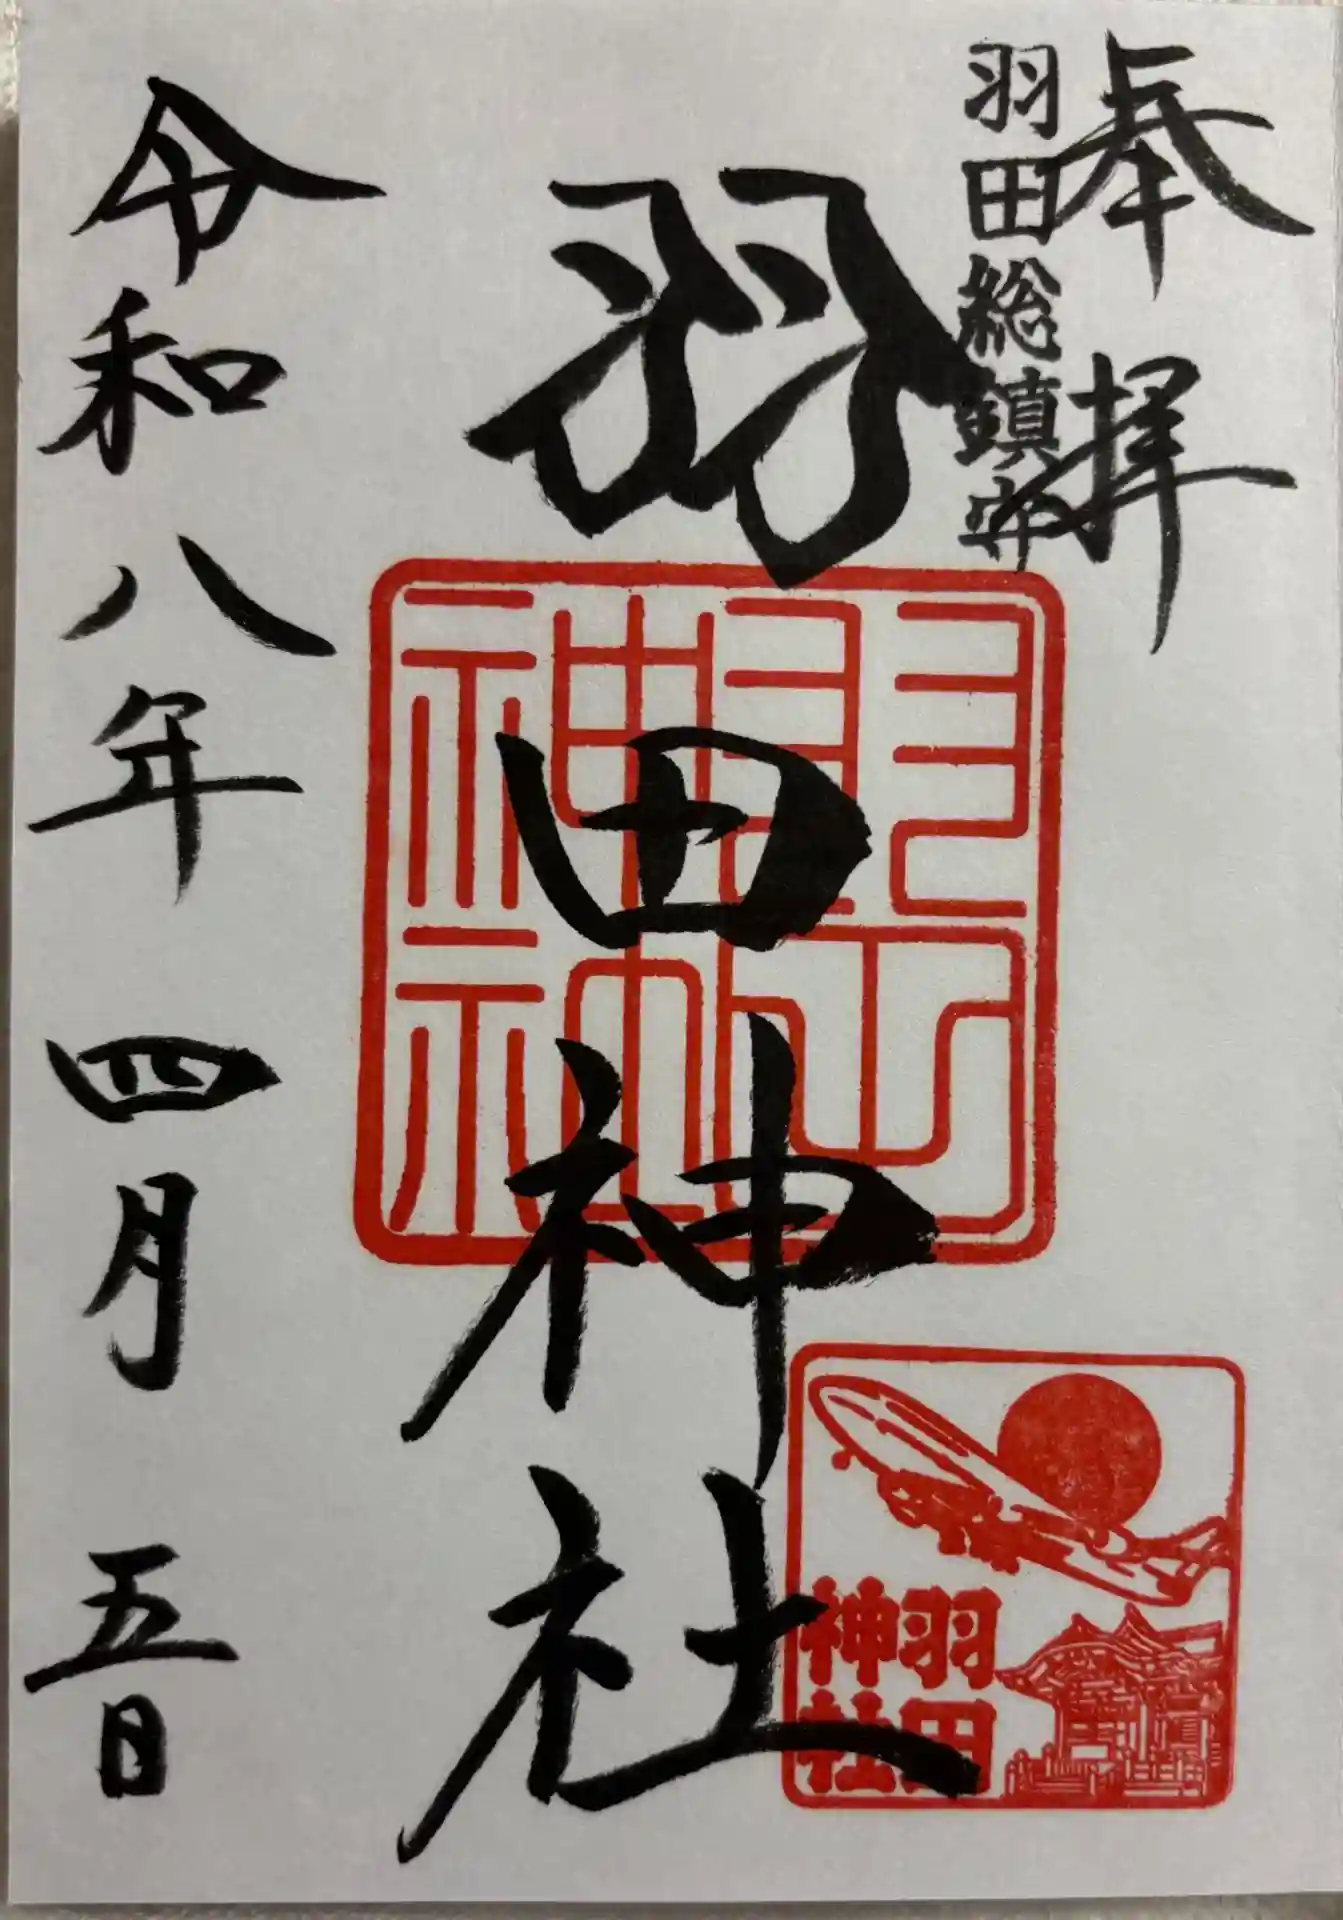 奉拝
羽田総鎮守
羽田神社
羽田
神社
羽田
神社
令和八年 四月 五日